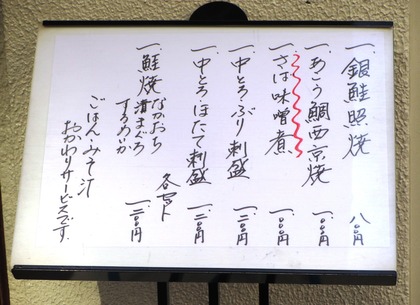 一、銀鮭照焼 八〇〇円
一、あこう鯛西京焼 一、〇〇〇円
一、さば味噌煮 一、〇〇〇円
一、中とろ・ぶり刺盛 一、二〇〇円
一、中とろ・ほたて刺盛 一、二〇〇円
一、鮭焼 なかおち 漬まぐろ するめいか 各写ト 一、二〇〇円
ごはん・みそ汁
おかわりサービスです。